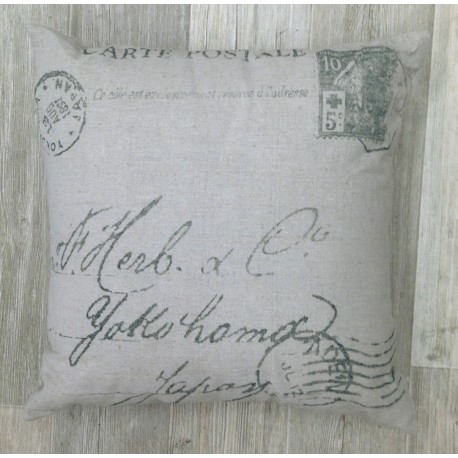 CARTE POSTALE
Ce côté est exclusivement réservé à l'adresse
10
5c
JAPAN
F. Herb. & Co
Yokohama
Japan